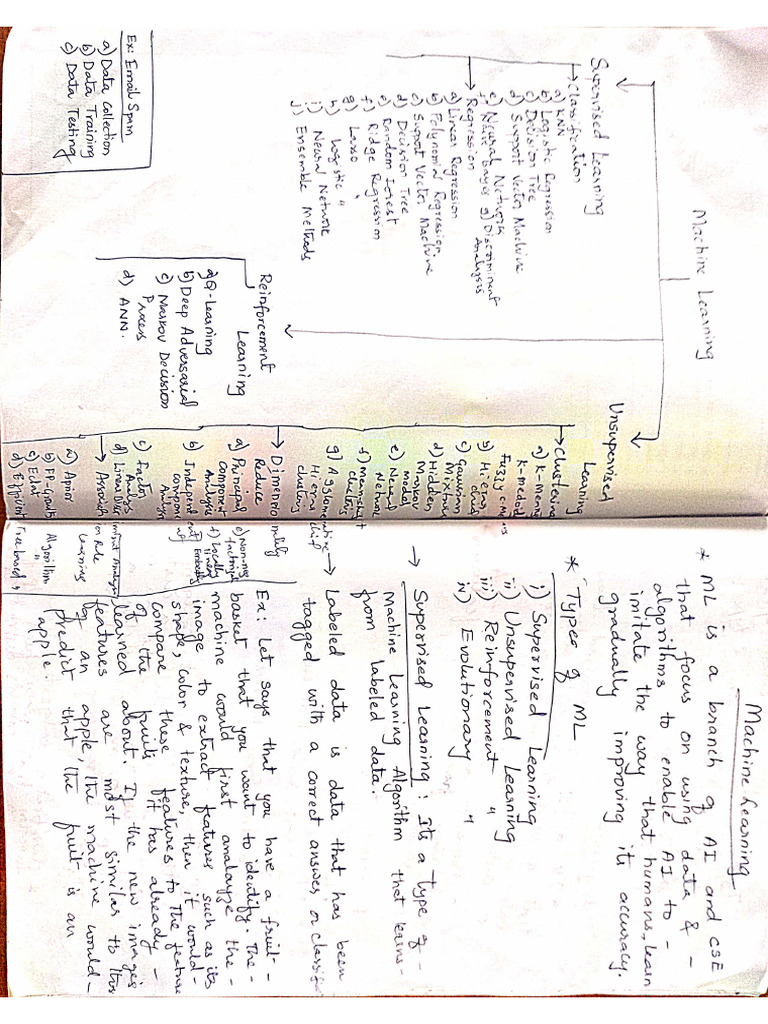 Machine Learning
Supervised Learning
→ Classification
a) KNN
b) Logistic Regression
c) Decision Tree
d) Support Vector Machine
e) Neural Network
f) Naive Bayes g) Discriminant Analysis
Regression
a) Linear Regression
b) Polynomial Regression
c) Support Vector Machine
d) Decision Tree
e) Random Forest
f) Ridge Regression
g) Lasso "
h) Logistic "
i) Neural Network
j) Ensemble Methods
Ex: Email Spam
a) Data Collection
b) Data Training
c) Data Testing
Reinforcement
Learning
a) Q-Learning
b) Deep Adversarial
c) Maskov Decision
Process
d) ANN.
Unsupervised
Learning
→ Clustering
a) K-means
K-medoid
Fuzzy c-means
b) Hiera
c) Gaussian
Mixture
d) Hidden
Maskov
modal
e) Neural
Network
f) Meanshift
clustering
g) Agglomerative
Hierarchi
clusting
Dimensionality
Reduce
a) Principal
component
Analysis
b) Independent
component
Analysis
c) Factor
Analysis
d) Linear Discriminant Analysis
e) Non-neg
f) Locally
linear
Embedding
→ Association Rule
Learning
a) Apriori Algorithm
b) FP-Growth "
c) Eclat
d) Efficient Tree-based "
Machine Learning
* ML is a branch of AI and CSE
that focus on using data & -
algorithms to enable AI to -
imitate the way that humans, learn
gradually improving its accuracy.
* Types of ML
i) Supervised Learning
ii) Unsupervised Learning
iii) Reinforcement "
iv) Evolutionary "
→ Supervised Learning: Its a Type of -
Machine Learning Algorithm that learns -
from labeled data.
→ Labeled data is data that has been
tagged with a correct answer or classifi
Ex: Let says that you have a fruit -
basket that you want to identify. The -
machine would first analayze the -
image to extract features such as its
shape, color & texture, then it would -
compare these features to the feature
of the fruits it has already -
learned about. If the new images
features are most similar to this
of an apple, the machine would -
predict that the fruit is an
apple.